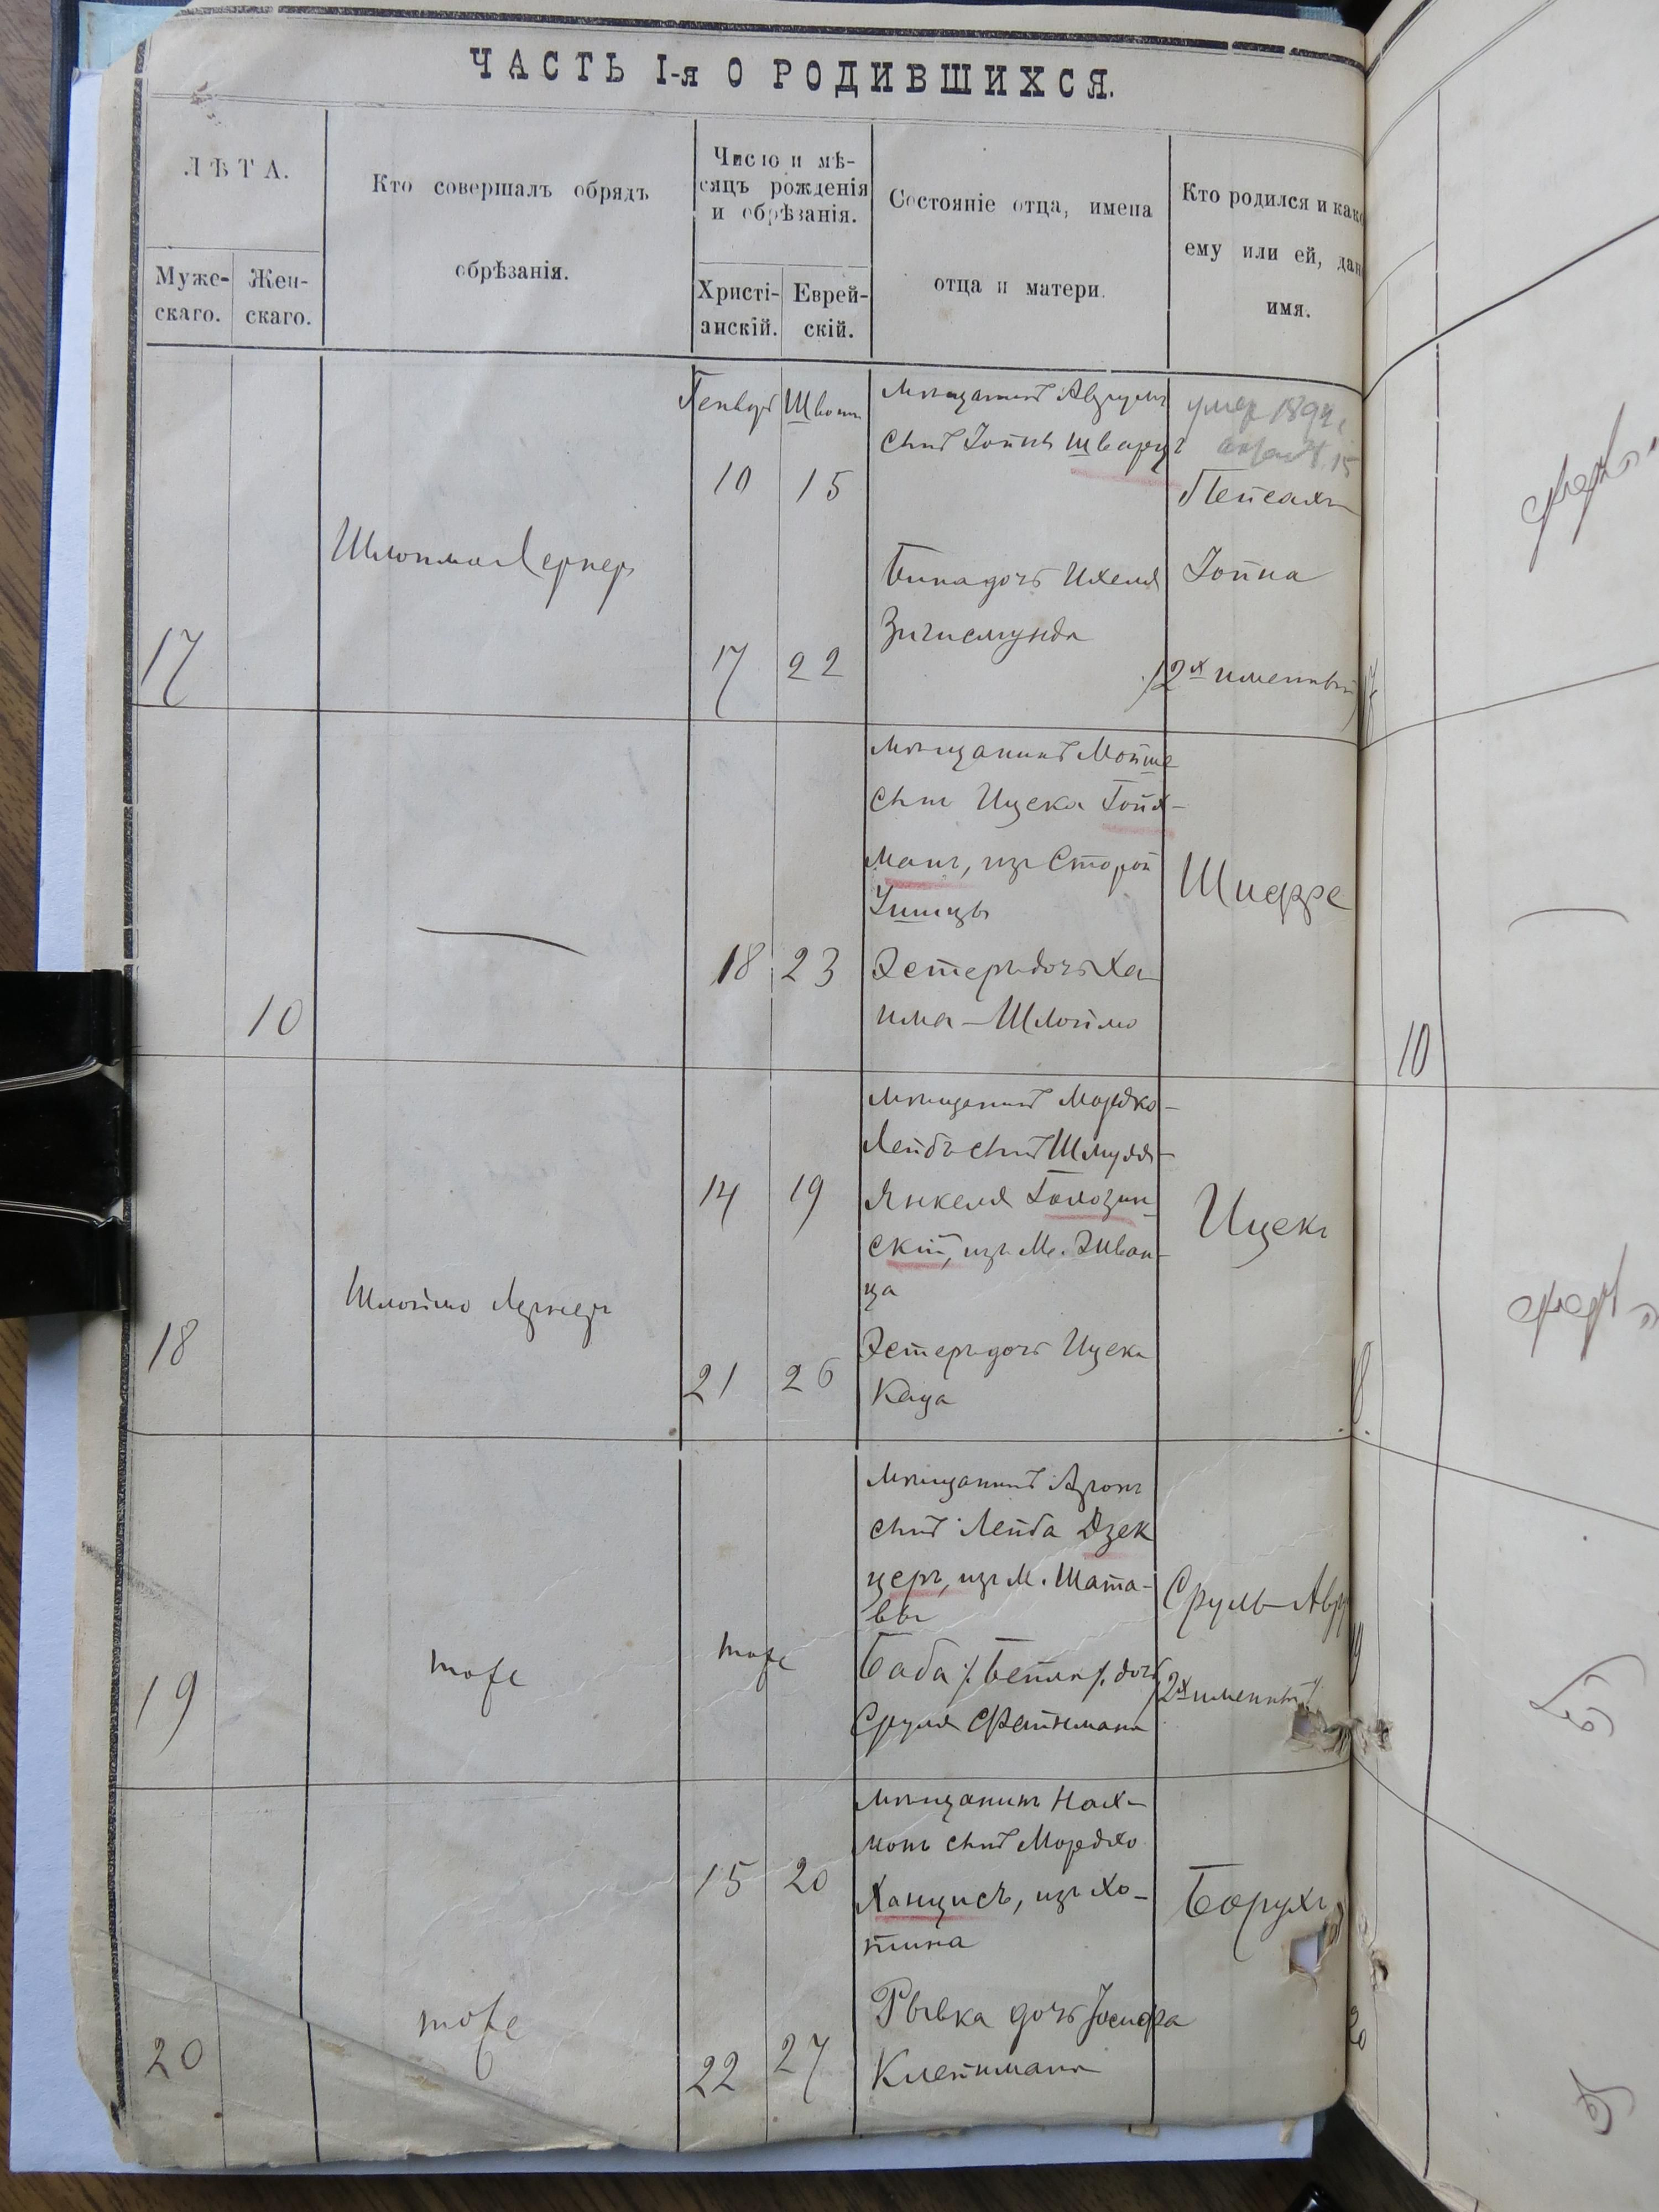 ЧАСТЬ I-я О РОДИВШИХСЯ.
ЛѢТА.
Муже-
скаго.
Жен-
скаго.
Кто совершалъ обрядъ
обрѣзанія.
Число и мѣ-
сяцъ рожденія
и обрѣзанія.
Христі-
анскій.
Еврей-
скій.
Состояніе отца, имена
отца и матери.
Кто родился и как
ему или ей, дан
имя.
Генвр Швот
10 15
17 22
17
Шлойма Лернер
мѣщанинъ Аврумъ
сынъ Іойнъ Шварцъ
Бина дочь Ихеля
Зигисмунда
умер 1894
15
Пейсахъ
Іойна
/2х именный/
10
18 23
мѣщанинъ Мойше
сынъ Ицека Гойх-
манъ, изъ Старой
Ушицы
Эстеръ дочь Ха-
има-Шлоймо
Шифре
18
Шлоймо Лернеръ
14 19
21 26
мѣщанинъ Мордко-
Лейбъ сынъ Шмуля-
Янкеля Галозин-
скій, изъ М. Жван-
ца
Эстеръ дочь Ицека
Каца
Ицекъ
19
тоже
тоже
мѣщанинъ Аронъ
сынъ Лейба Дзек
церъ, изъ М. Шата-
вы
Баба /Бейла/ дочь
Сруля Файнмана
Сруль-Авр
/2х именный/
20
тоже
15 20
22 27
мѣщанинъ Нах-
монъ сынъ Мордко
Ханцисъ, изъ Хо-
тина
Рывка дочь Іосифа
Клейнмана
Борухъ
10